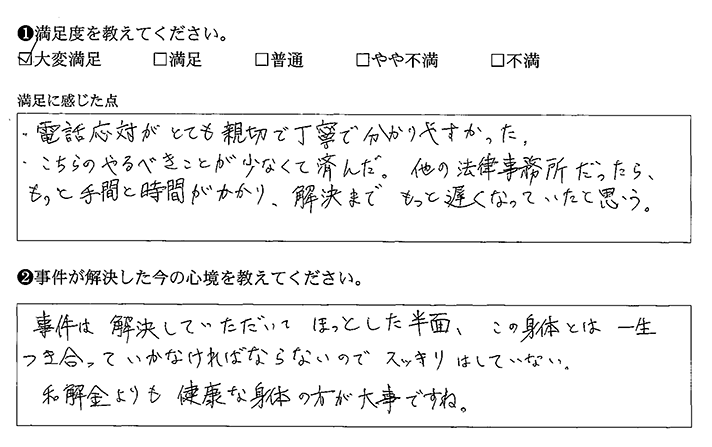 ❶満足度を教えてください。
☑大変満足 □満足 □普通 □やや不満 □不満
満足に感じた点
・電話応対がとても親切で丁寧で分かりやすかった。
・こちらのやるべきことが少なくて済んだ。他の法律事務所だったら、
もっと手間と時間がかかり、解決までもっと遅くなっていたと思う。
❷事件が解決した今の心境を教えてください。
事件は解決していただいてほっとした半面、この身体とは一生
つき合っていかなければならないのでスッキリはしていない。
和解金よりも健康な身体の方が大事ですね。